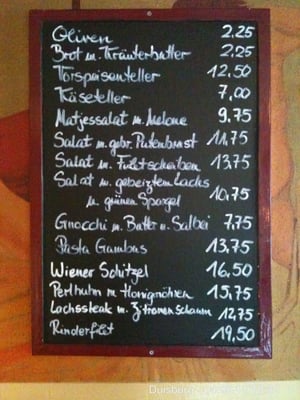 Oliven 2.25
Brot m. Kräuterbutter 2.25
Vorspeisenteller 12,50
Käseteller 7,00
Matjessalat m. Melone 9.75
Salat m. gebr. Putenbrust 11,75
Salat m. Filetscheiben 13,75
Salat m. gebeiztem Lachs
u. grünen Spargel 10,75
Gnocchi m. Butter u. Salbei 7,75
Pasta Gambas 13,75
Wiener Schitzel 16,50
Perlhuhn m. Honigmöhren 15,75
Lachssteak m. Zitronenschaum 12,75
Rinderfilet 19,50